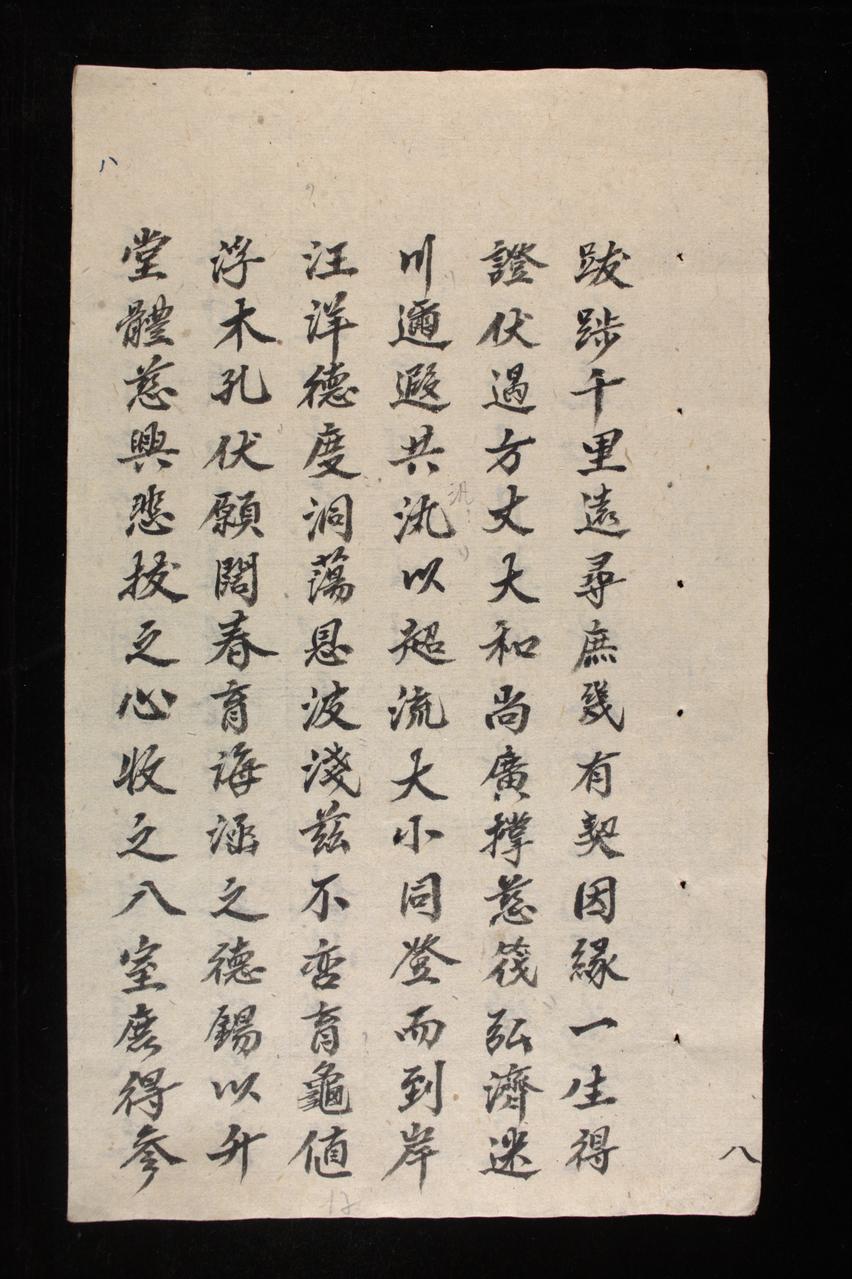 跋踄千里遠尋庶幾有契因緣一生得
證伏遇方丈大和尚廣撑慈筏弘濟迷
川邇遐共汎以超流大小同登而到岸
汪洋德度洞蕩恩波淺茲不啻盲龜值
浮木孔伏願闊春育海涵之德錫以升
堂體慈興悲拔之心收之入室庶得參
八
八
汎